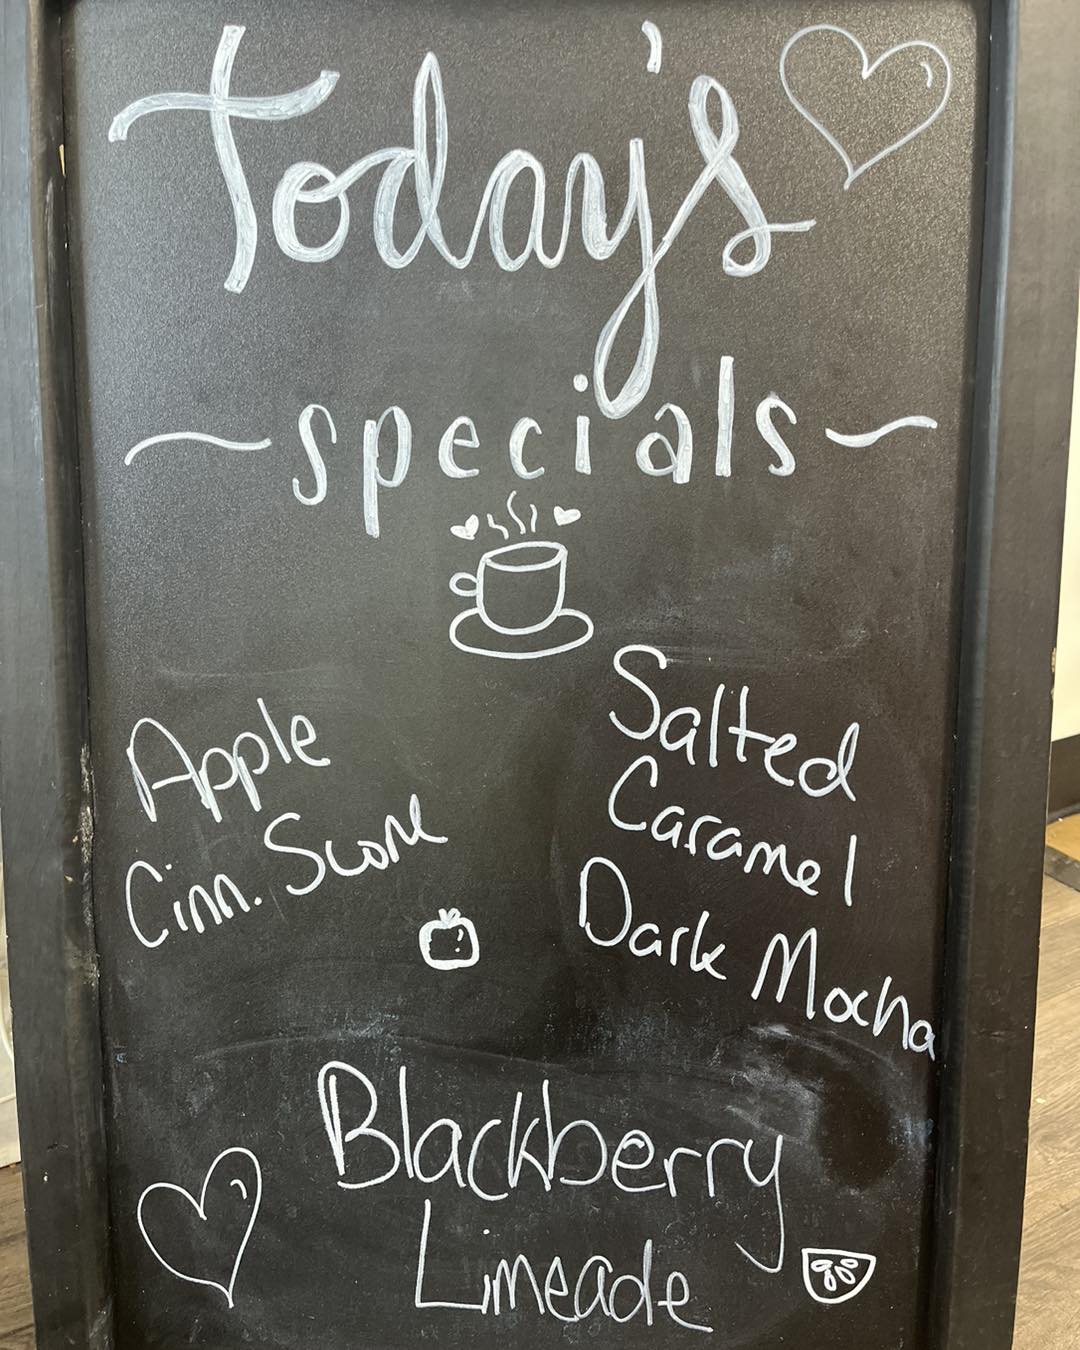 Today's
~specials~
Apple
Cinn. Scone
Salted
Caramel
Dark Mocha
Blackberry
Limeade